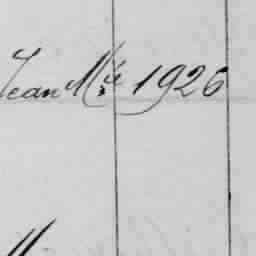 Jean Mie 1926